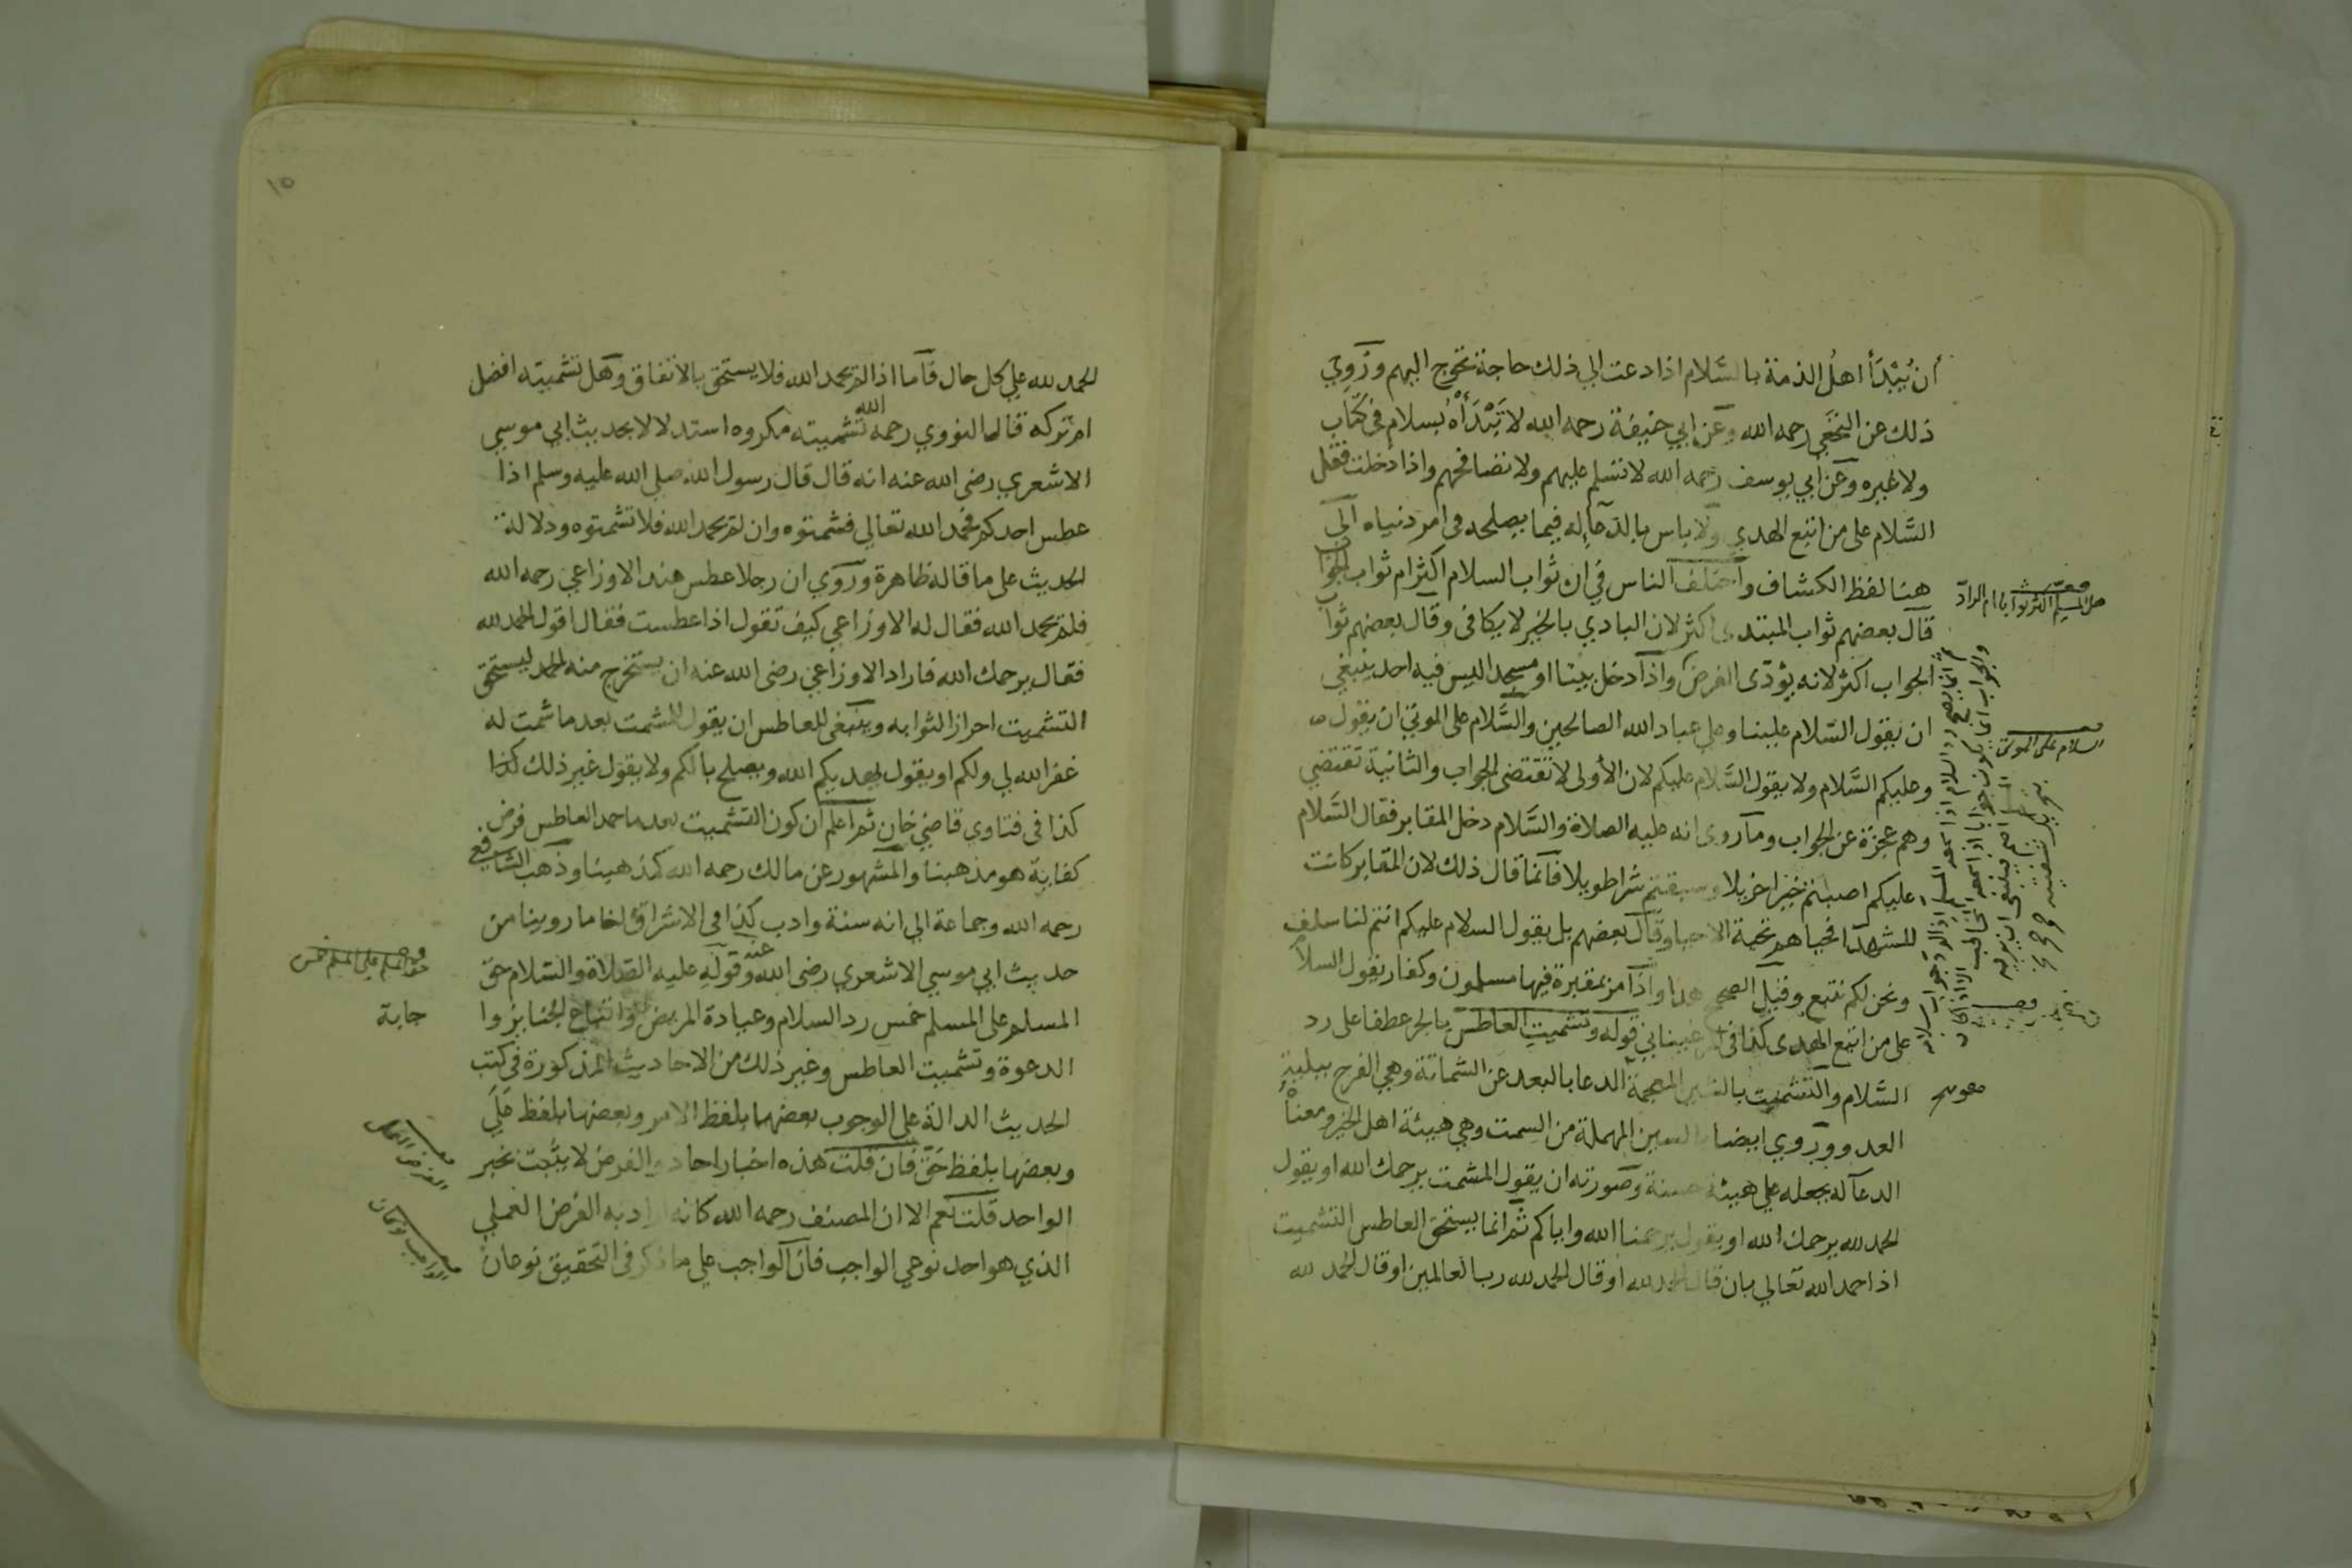 أن يُبْدَأ اهلُ الذمة بالسَّلام اذا دعت الي ذلك حاجة تخرج اليهم ورُوِيَ
ذلك عن النخَعي رحمه الله وعن ابي حنيفة رحمه الله لا تَبْدَأْهُ بسلام في كتاب
ولا غيره وعن ابي يوسف رحمه الله لا تسلم عليهم ولا تصافحهم واذا دخلت فقل
السَّلام على من اتبع الهدي ولا باس بالدعاء له فيما يصلحه في امر دنياه الى
هنا لفظ الكشاف واختلف الناس في ان ثواب السلام اكثر ام ثواب الجواب
قال بعضهم ثواب المبتدى اكثر لان البادي بالخير لا يكافى وقال بعضهم ثواب
الجواب اكثر لانه يؤدّى الفرض واذا دخل بيتا او مسجدا ليس فيه احد ينبغي
ان يقول السّلام علينا وعلي عباد الله الصالحين والسَّلام على الموتي ان يقول
وعليكم السَّلام ولا يقول السَّلام عليكم لان الأولى لا تقتضى الجواب والثانية تقتضي
وهم عجزة عن الجواب وما روى انه عليه الصلاة والسَّلام دخل المقابر فقال السَّلام
عليكم اصبتم خيرا جزيلا وسبقتم شرا طويلا فانما قال ذلك لان المقابر كانت
للشهدا فحياهم تحية الاحيا وقال بعضهم بل يقول السلام عليكم انتم لنا سلف
ونحن لكم تبع وقيل الصحيح هذا واذا مرّ بمقبرة فيها مسلمون وكفار يقول السلام
على من اتبع الهدى كذا في قوله وتشميت العاطس بالجر عطفا على رد
السَّلام والتشميت بالشين المعجمة الدعا بالبعد عن الشماتة وهي الفرح ببلية
العدو وروي ايضا بالسين المهملة من السمت وهي هيئة اهل الخير ومعناه
الدعآ له بجعله علي هيئة حسنة وصورته ان يقول المشمت يرحمك الله او يقول
الحمد لله يرحمك الله او يقول يرحمنا الله واياكم ثم انما يستحق العاطس التشميت
اذا حمد الله تعالي بان قال الحمد لله او قال الحمد لله رب العالمين او قال الحمد لله
هل المسلم اكثر ثوابا ام الرادّ
السلام على الموتى
١٥
الحمد لله علي كل حال فآما اذا لم يحمد الله فلا يستحق بالاتفاق وهل تشميته افضل
ام تركه قال النووي رحمه الله تشميته مكروه استدلالا بحديث ابي موسي
الاشعري رضى الله عنه انه قال قال رسول الله صلي الله عليه وسلم اذا
عطس احدكم فحمد الله تعالي فشمتوه وان لم يحمد الله فلا تشمتوه ودلالة
الحديث على ما قاله ظاهرة وروي ان رجلا عطس عند الاوزاعي رحمه الله
فلم يحمد الله فقال له الاوزاعي كيف تقول اذا عطست فقال اقول الحمد لله
فقال يرحمك الله فاراد الاوزاعي رضى الله عنه ان يستخرج منه الحمد ليستحق
التشميت احرازا لثوابه وينبغى للعاطس ان يقول للمشمت بعد ما شمت له
غفر الله لي ولكم او يقول يهديكم الله ويصلح بالكم ولا يقول غير ذلك كذا
كذا في فتاوي قاضي خان ثم اعلم ان كون التشميت بعد ما حمد العاطس فرض
كفاية هو مذهبنا والمشهور عن مالك رحمه الله كمذهبنا وذهب الشافعي
رحمه الله وجماعة الي انه سنة وادب كذا في الاشراق لنا ما روينا من
حديث ابي موسي الاشعري رضى الله عنه وقوله عليه الصلاة والسّلام حق
المسلم على المسلم خمس رد السلام وعيادة المريض واتباع الجنايز وا
جابة
الدعوة وتشميت العاطس وغير ذلك من الاحاديث المذكورة في كتب
الحديث الدالة على الوجوب بعضها بلفظ الامر وبعضها بلفظ عَلَي
وبعضها بلفظ حَقّ فان قلت هذه اخبار احاد والفرض لا يثبت بخبر
الواحد قلت نعم الا ان المصنف رحمه الله كانه اراد به الفرض العملي
الذي هو احد نوعي الواجب فان الواجب علي ما ذكر في التحقيق نوعان
حق المسلم علي المسلم خمس